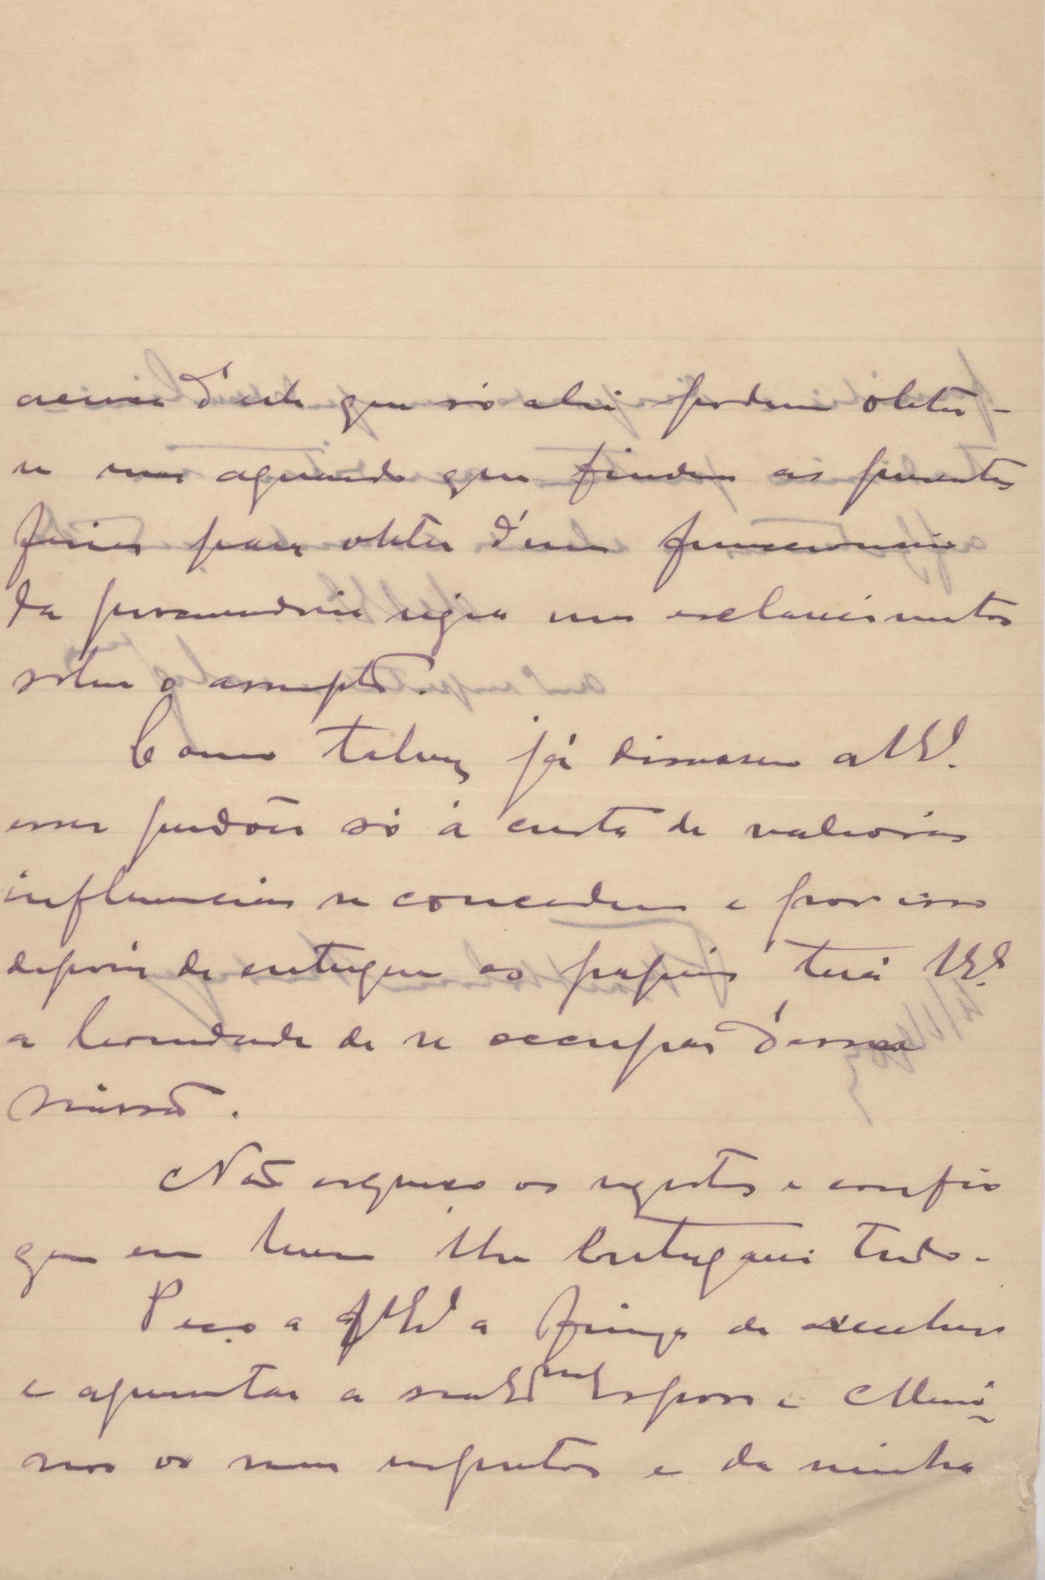 acerca d'este que só ahi podem obter-
se mas aguardo que findem as presentes
ferias para obter d'um funccionario
da procuradoria regia uns esclarecimentos
sobre o assumpto.
Como talvez já dissessem a V. Ex.ª
esses perdões só á custa de valiosas
influencias se concedem e por isso
depois de entregues os papeis terá V. Ex.ª
a bondade de se occupar d'essa
missão.
Não esqueço os registos e confio
que em breve lhe entregarei tudo.
Peço a V. Ex.ª a fineza de acceitar
e apresentar a sua Ex.ma Esposa e Meni-
nos os meus respeitos e da minha